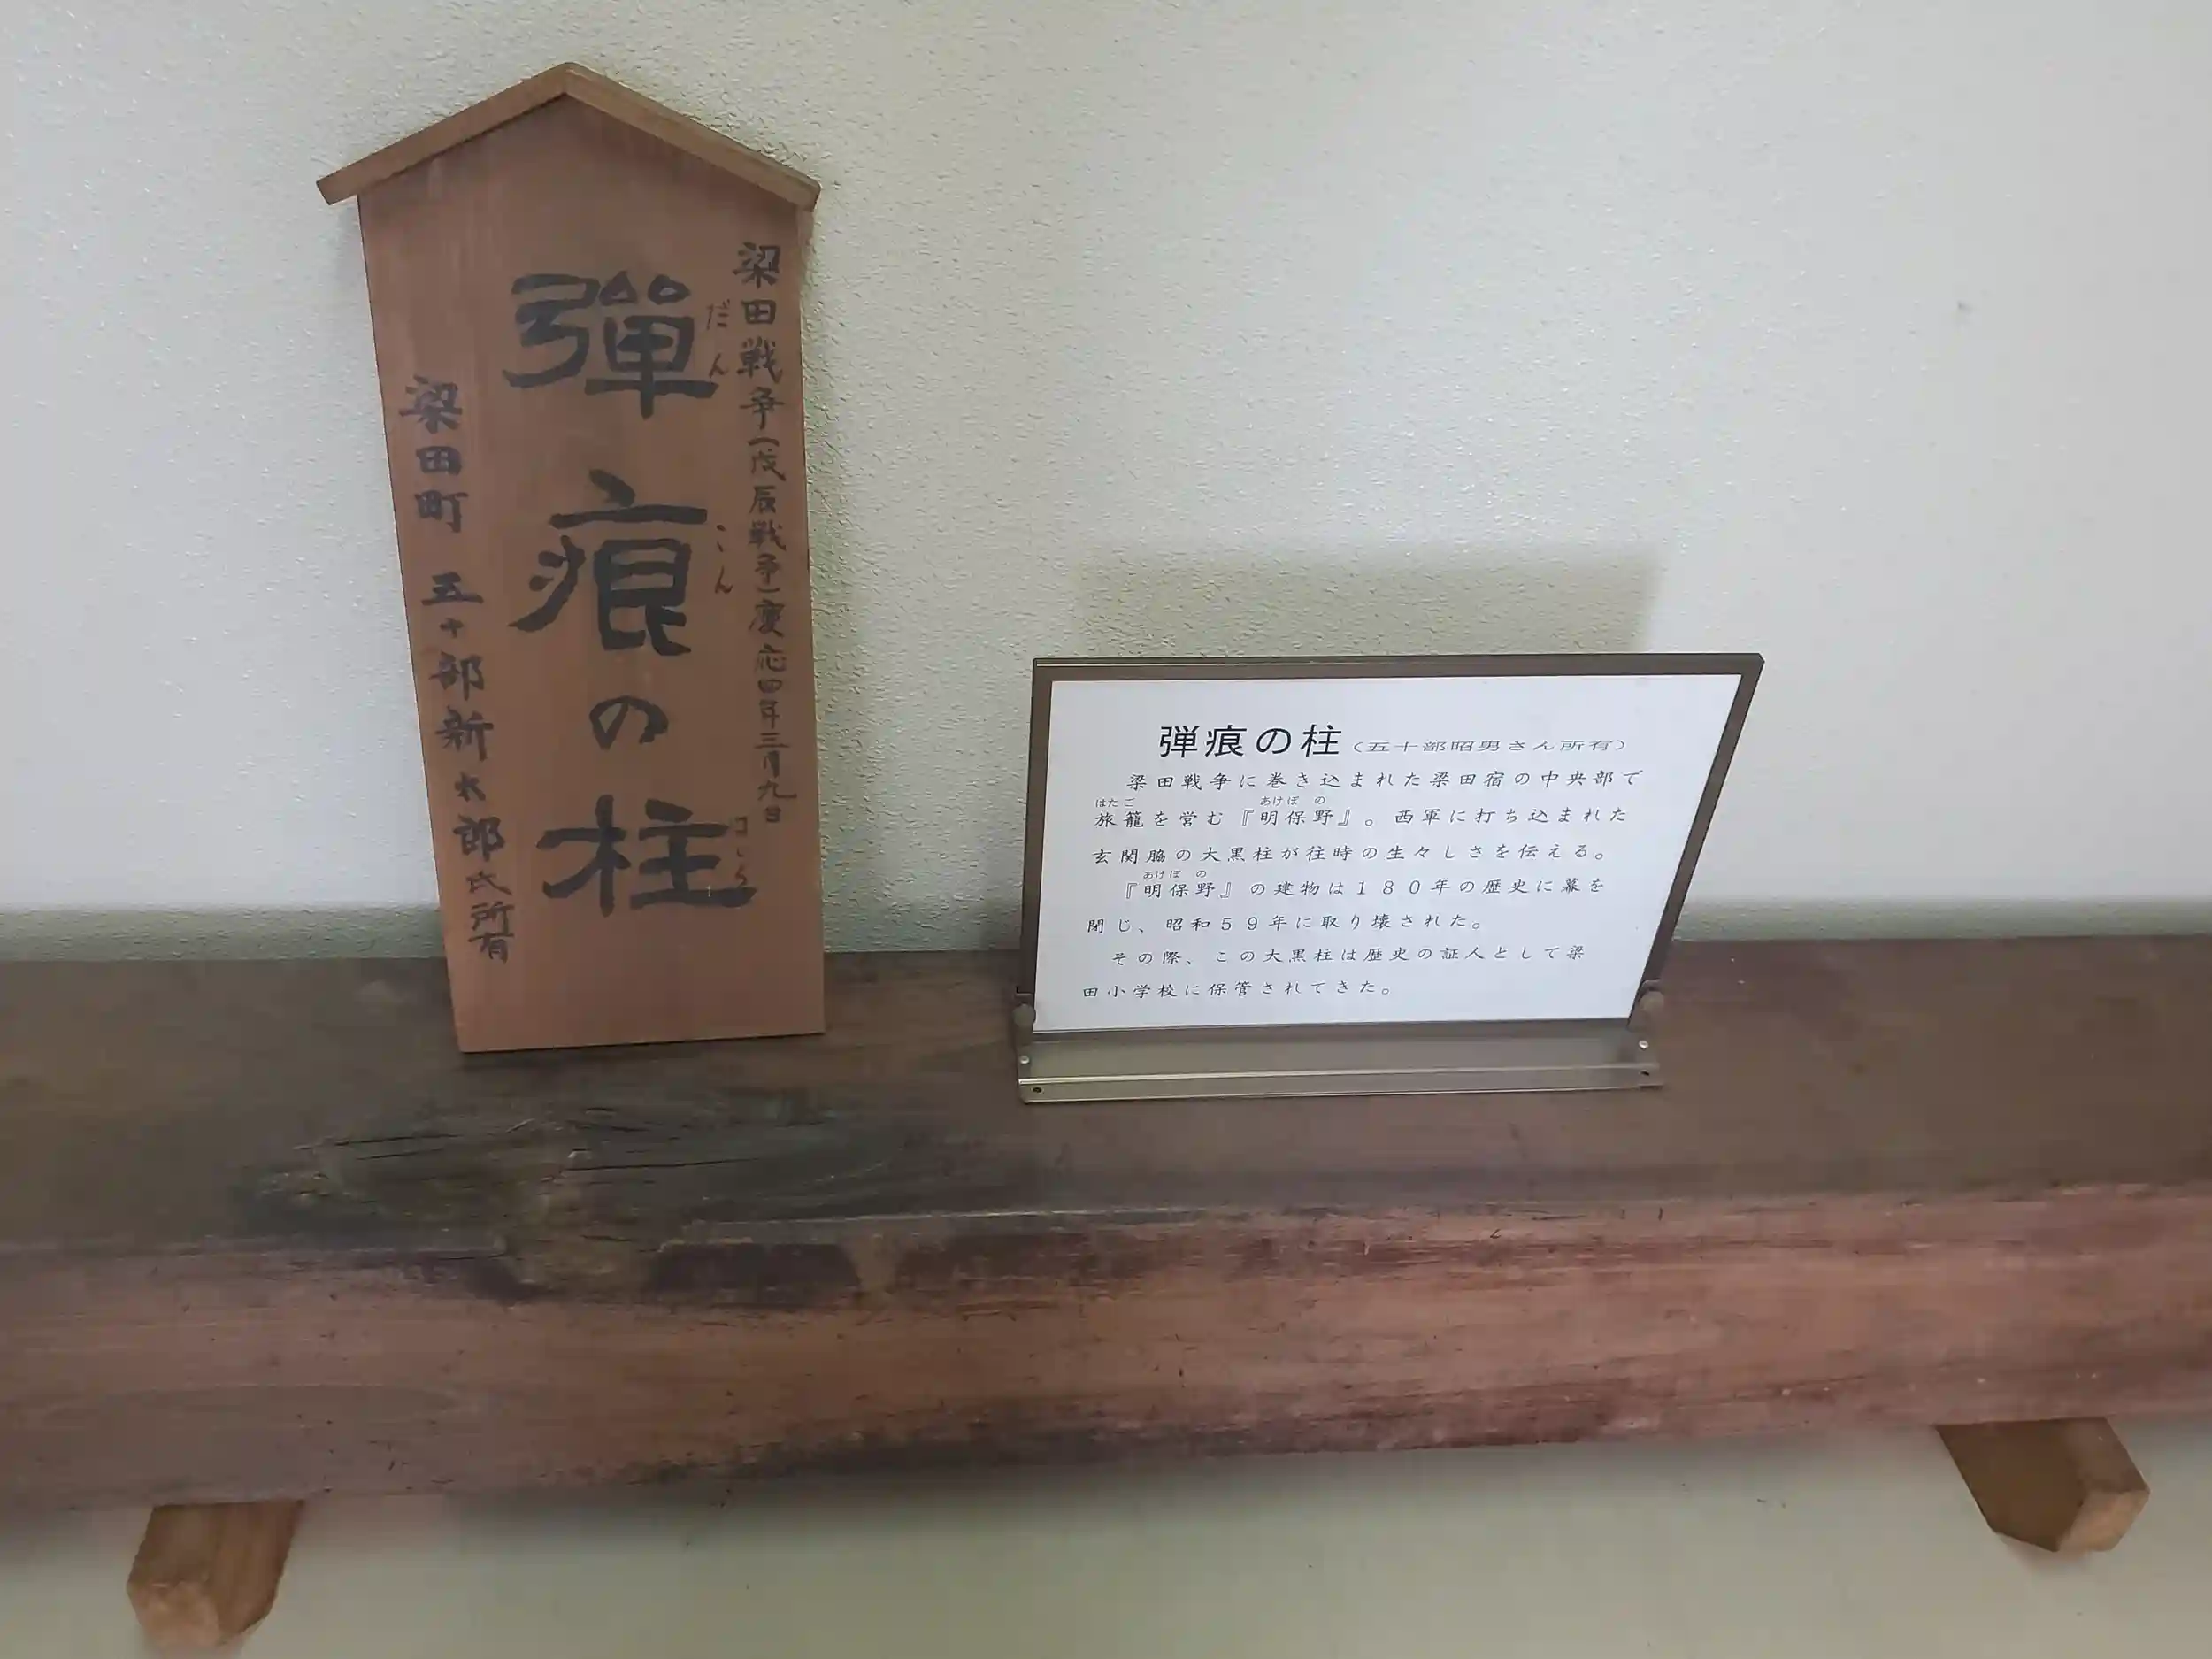 梁田戦争(戊辰戦争)慶応四年三月九日
彈痕の柱
だんこん はしら
梁田町 五十部新太郎氏所有
弾痕の柱(五十部昭男さん所有)
梁田戦争に巻き込まれた梁田宿の中央部で
はたご あけぼの
旅籠を営む『明保野』。西軍に打ち込まれた
玄関脇の大黒柱が往時の生々しさを伝える。
あけぼの
『明保野』の建物は180年の歴史に幕を
閉じ、昭和59年に取り壊された。
その際、この大黒柱は歴史の証人として梁
田小学校に保管されてきた。